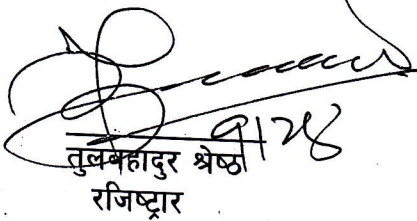 ९।२४
तुलबहादुर श्रेष्ठ
रजिष्ट्रार